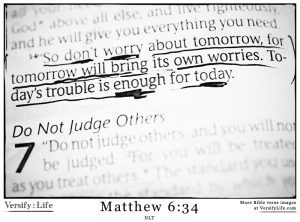 God" above all else, and live righteously,
and he will give you everything you need.
34 "So don't worry about tomorrow, for
tomorrow will bring its own worries. To-
day's trouble is enough for today.
Do Not Judge Others
7 "Do not judge others, and you will not
be judged. 2 For you will be treated
as you treat others.* The standard you
Versify:Life
Matthew 6:34
NLT
More Bible verse images
at VersifyLife.com